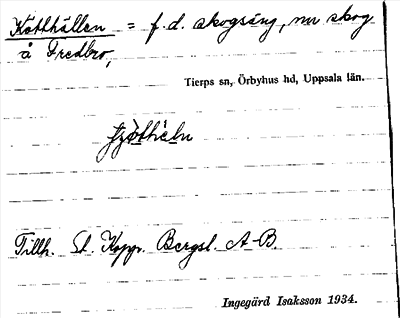 Kätthällen = f.d. skogsäng, nu skog
å Fredbro,
Tierps sn, Örbyhus hd, Uppsala län.
Tillh. St. Kopp. Bergsl. A-B.
Ingegärd Isaksson 1934.